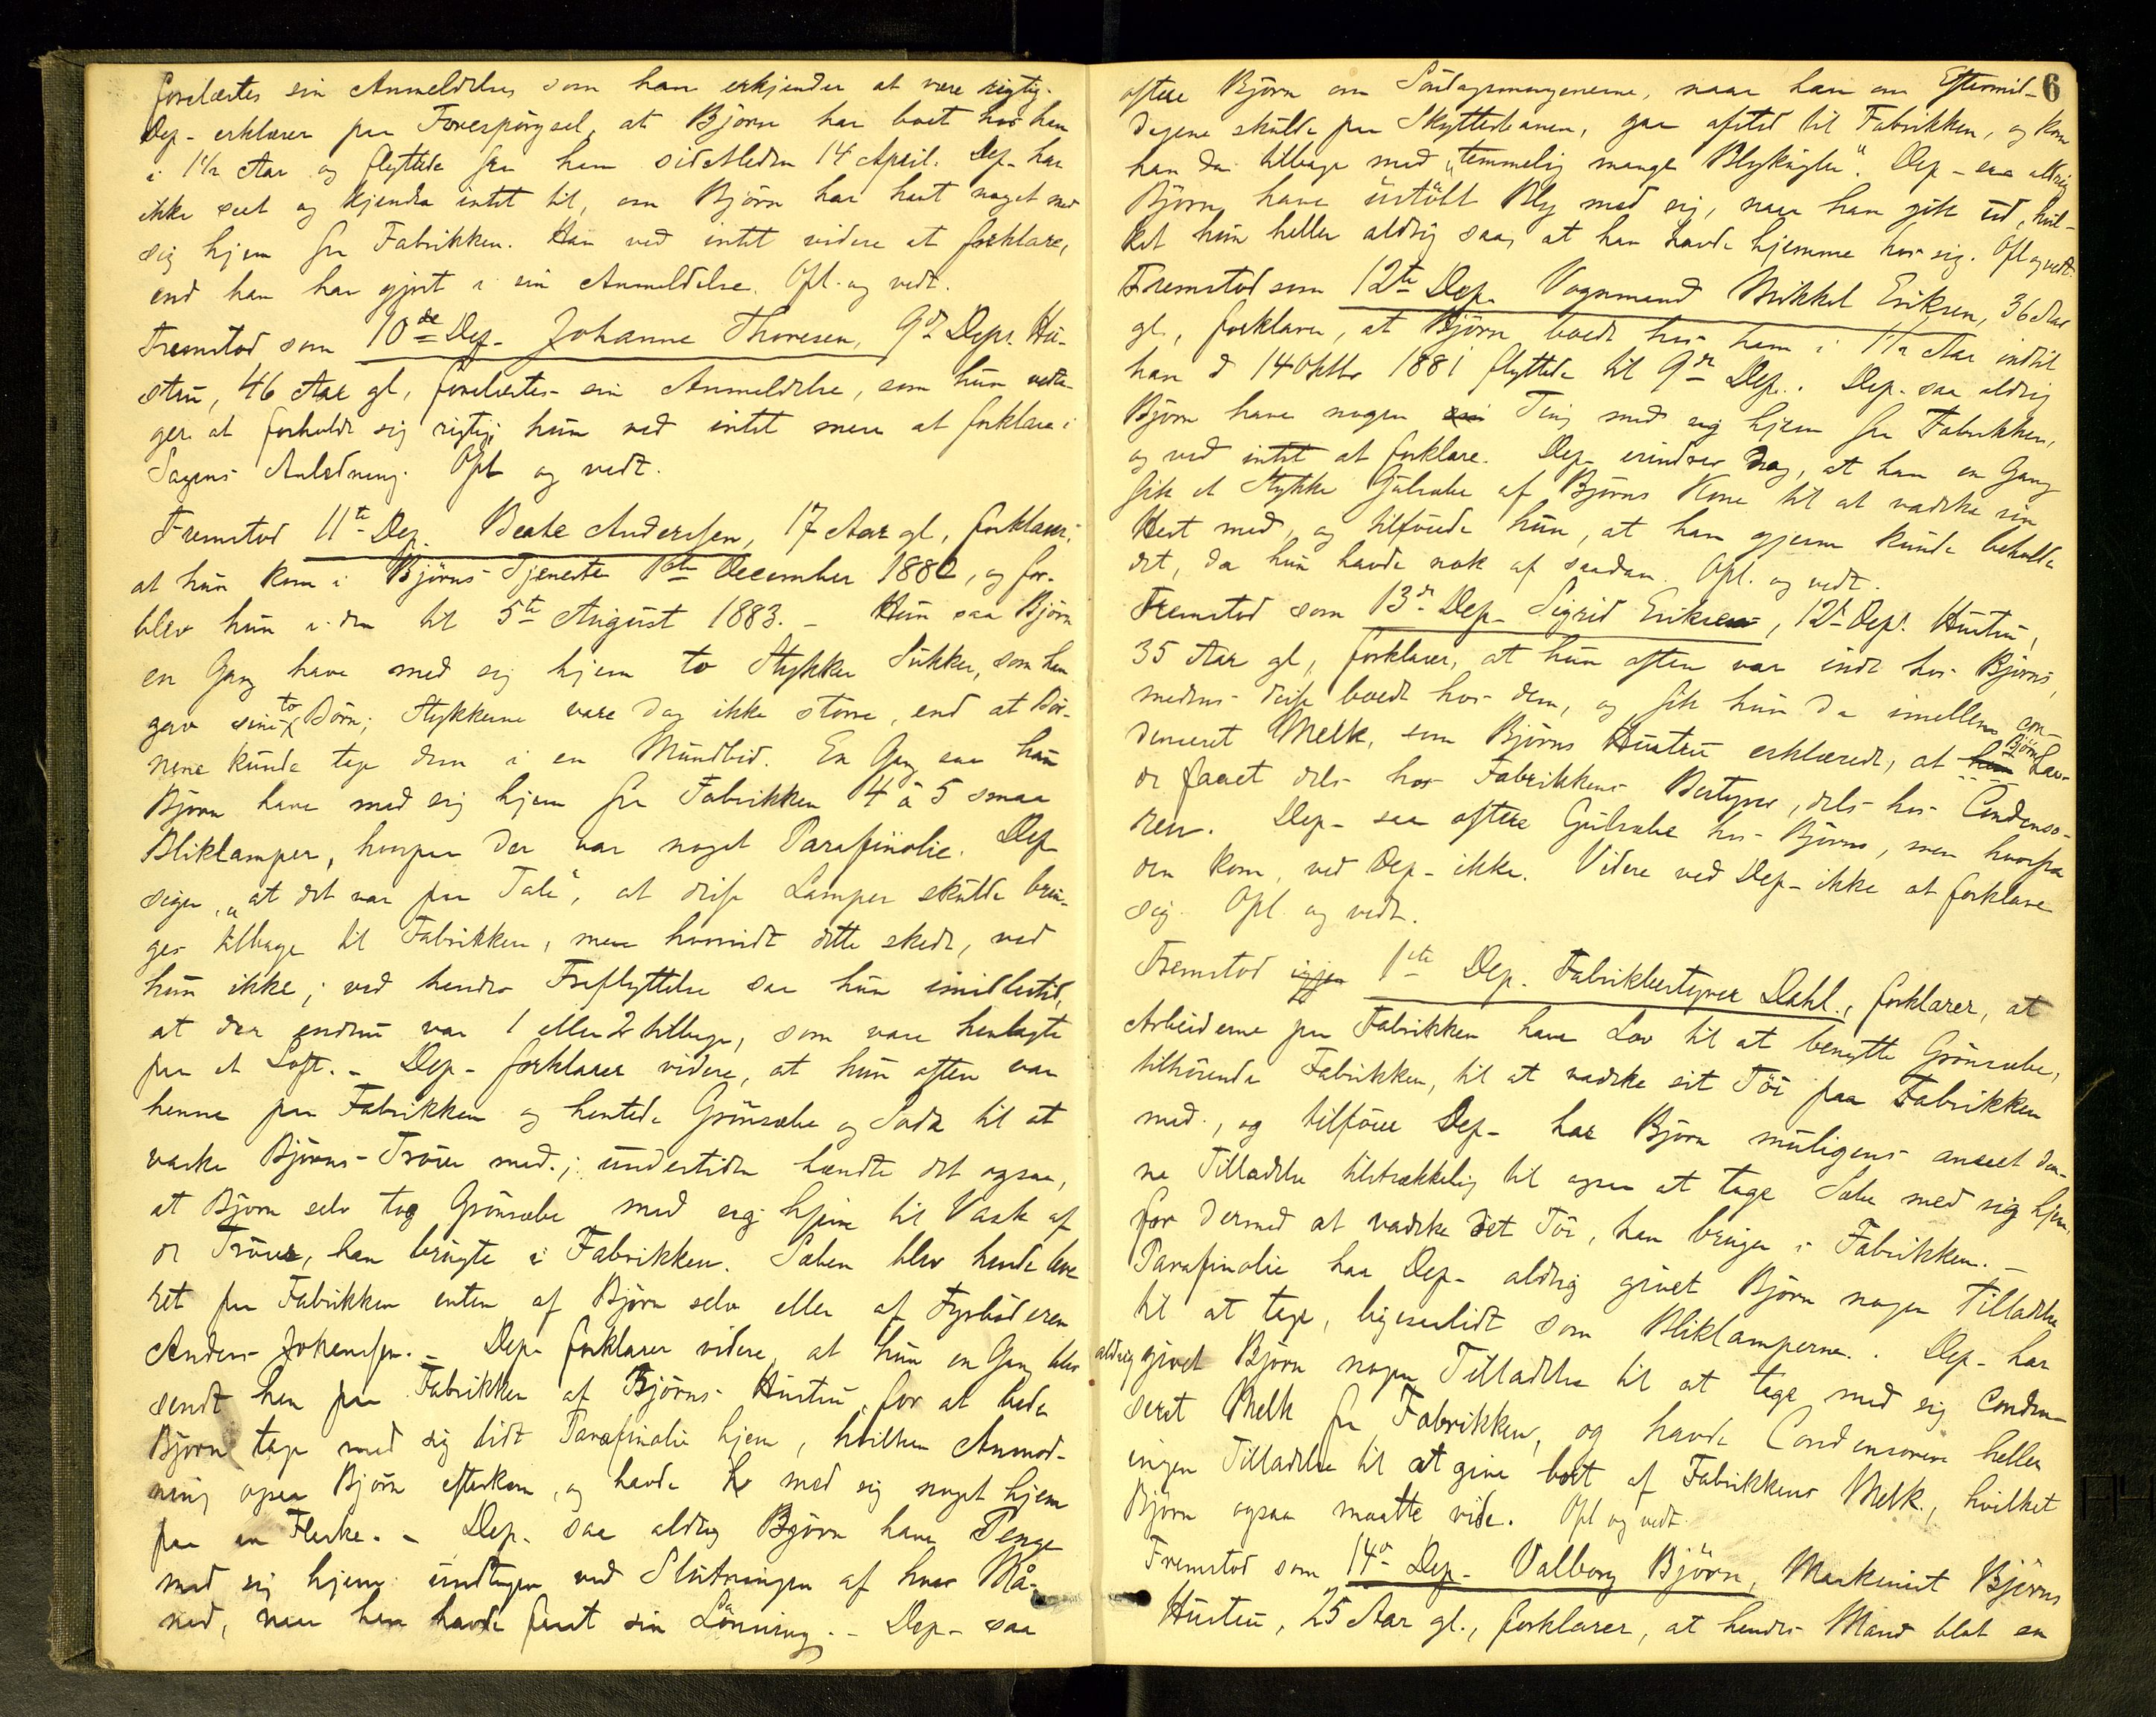 forelæstes sin Anmeldelse som han erkjender at være rigtig.
Dep. erklærer paa Forespörgsel, at Björn har boet hos ham
i 1½ Aar og flyttede fra ham sidstleden 14 April. Dep. har
ikke seet og kjender intet til, om Björn har havt noget med
sig hjem fra Fabrikken. Han ved intet videre at forklare,
end han har gjort i sin Anmeldelse. Opl. og vedt.
Fremstod som 10de Dep. Johanne Thoresen, 9de Deps. Hu-
stru, 46 Aar gl, forelæstes sin Anmeldelse, som hun vedta-
ger at forholde sig rigtig; hun ved intet mere at forklare i
Sagens Anledning. Opl. og vedt.
Fremstod 11te Dep. Beate Anderssen, 17 Aar gl, forklarer,
at hun kom i Björns Tjeneste 1ste December 1882, og for-
blev hun i den til 5te August 1883. - Hun saa Björn
en Gang have med sig hjem to Stykker Sukker, som han
gav sine to Börn; Stykkerne vare dog ikke större, end at Bör-
nene kunde tage dem i en Mundbid. En Gang saa hun
Björn have med sig hjem fra Fabrikken 4 à 5 smaa
Bliklamper, hvorpaa der var noget Parafinolie. Dep.
siger, „at det var paa Tale", at disse Lamper skulde brin-
ges tilbage til Fabrikken, men hvorvidt dette skede, ved
hun ikke; ved hendes Fraflyttelse saa hun imidlertid,
at der endnu var 1 eller 2 tilbage, som vare henlagte
paa et Loft. - Dep. forklarer videre, at hun ofte var
henne paa Fabrikken og hentede Grönsæbe og Soda til at
vaske Björns Tröier med; undertiden hændte det ogsaa,
at Björn selv tog Grönsæbe med sig hjem til Vask af
de Tröier, han brugte i Fabrikken. Sæben blev hende leve-
ret paa Fabrikken enten af Björn selv eller af Fyrböderen
Anders Johanssen. - Dep. forklarer videre, at hun en Gang blev
sendt hen paa Fabrikken af Björns Hustru, for at bede
Björn tage med sig lidt Parafinolie hjem, hvilken Anmod-
ning ogsaa Björn efterkom, og havde h med sig noget hjem
paa en Flaske. - Dep. saa aldrig Björn have Penge
med sig hjem undtagen ved Slutningen af hver Må-
ned, naar han havde faaet sin Lönning. - Dep. saa
6
oftere Björn om Söndagsmorgenerne, naar han om Eftermid-
dagene skulde paa Skyttebanen, gaa afsted til Fabrikken, og kom
han da tilbage med „temmelig mange Blykugler". Dep. saa aldrig
Björn have ustöbt Bly med sig, naar han gik ud, hvil-
ket hun heller aldrig saa, at han havde hjemme hos sig. Opl og vedt
Fremstod som 12te Dep. Vognmand Mikkel Eriksen, 36 Aar
gl, forklarer, at Björn boede hos ham i 1½ Aar indtil
han d 14 Oktbr 1881 flyttede til 9de Dep. Dep. saa aldrig
Björn have nogen Ting med sig hjem fra Fabrikken,
og ved intet at forklare. Dep. erindrer dog, at han en Gang
fik et Stykke Gulsæbe af Björns Kone til at vadske sin
Hest med, og tilföiede hun, at han gjerne kunde beholde
det, da hun havde nok af saadan. Opl. og vedt.
Fremstod som 13de Dep. Sigrid Eriksen, 12te Deps. Hustru,
35 Aar gl, forklarer, at hun ofte var inde hos Björns,
medens disse boede hos dem, og fik hun da imellem con-
denseret Melk, som Björns Hustru erklærede, at hun Björn hav-
de faaet dels hos Fabrikkens Bestyrer, dels hos Condenso-
ren. Dep. saa oftere Gulsæbe hos Björns, men hvorfra
den kom, ved Dep. ikke. Videre ved Dep. ikke at forklare
sig. Opl. og vedt.
Fremstod igjen 1ste Dep. Fabrikbestyrer Dahl, forklarer, at
Arbeiderne paa Fabrikken have Lov til at benytte Grönsæbe,
tilhörende Fabrikken, til at vadske sit Töi paa Fabrikken
med, og tilföier Dep. har Björn muligens anseet den-
ne Tilladelse tilstrækkelig til ogsaa at tage Sæbe med sig hjem,
for dermed at vadske det Töi, han bruger i Fabrikken. -
Parafinolie har Dep. aldrig givet Björn nogen Tilladelse
til at tage, ligesaalidt som Bliklamperne. Dep. har
aldrig givet Björn nogen Tilladelse til at tage med sig conden-
seret Melk fra Fabrikken, og havde Condensoren heller
ingen Tilladelse til at give bort af Fabrikkens Melk, hvilket
Björn ogsaa maatte vide. Opl og vedt.
Fremstod som 14de Dep. Valborg Björn, Maskinist Björns
Hustru, 25 Aar gl., forklarer, at hendes Mand blot en